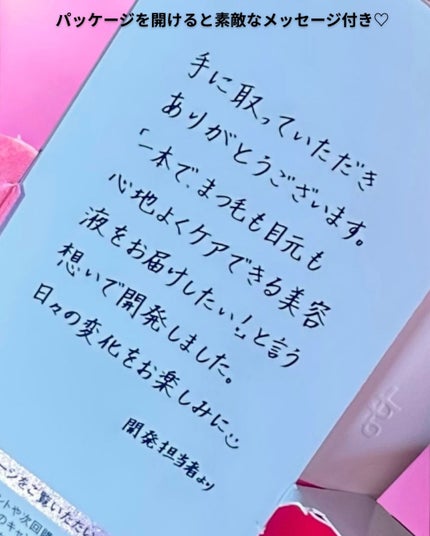 パッケージを開けると素敵なメッセージ付き♡
手に取っていただき
ありがとうございます。
「一本で、まつ毛も目元も
心地よくケアできる美容
液をお届けしたい!」と言う
想いで開発しました。
日々の変化をお楽しみに
開発担当者より
ージをご覧いただい
ントや次回購